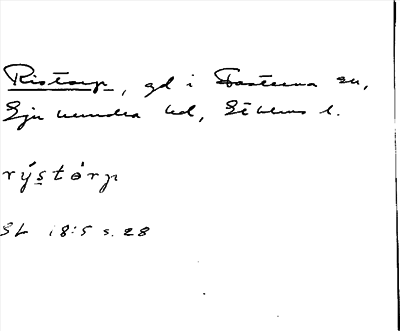 Ristorp, gd i Fasterna sn,
Sju hundra hd, Sthlms l.
rýstòrp
SL 18:5 s. 28